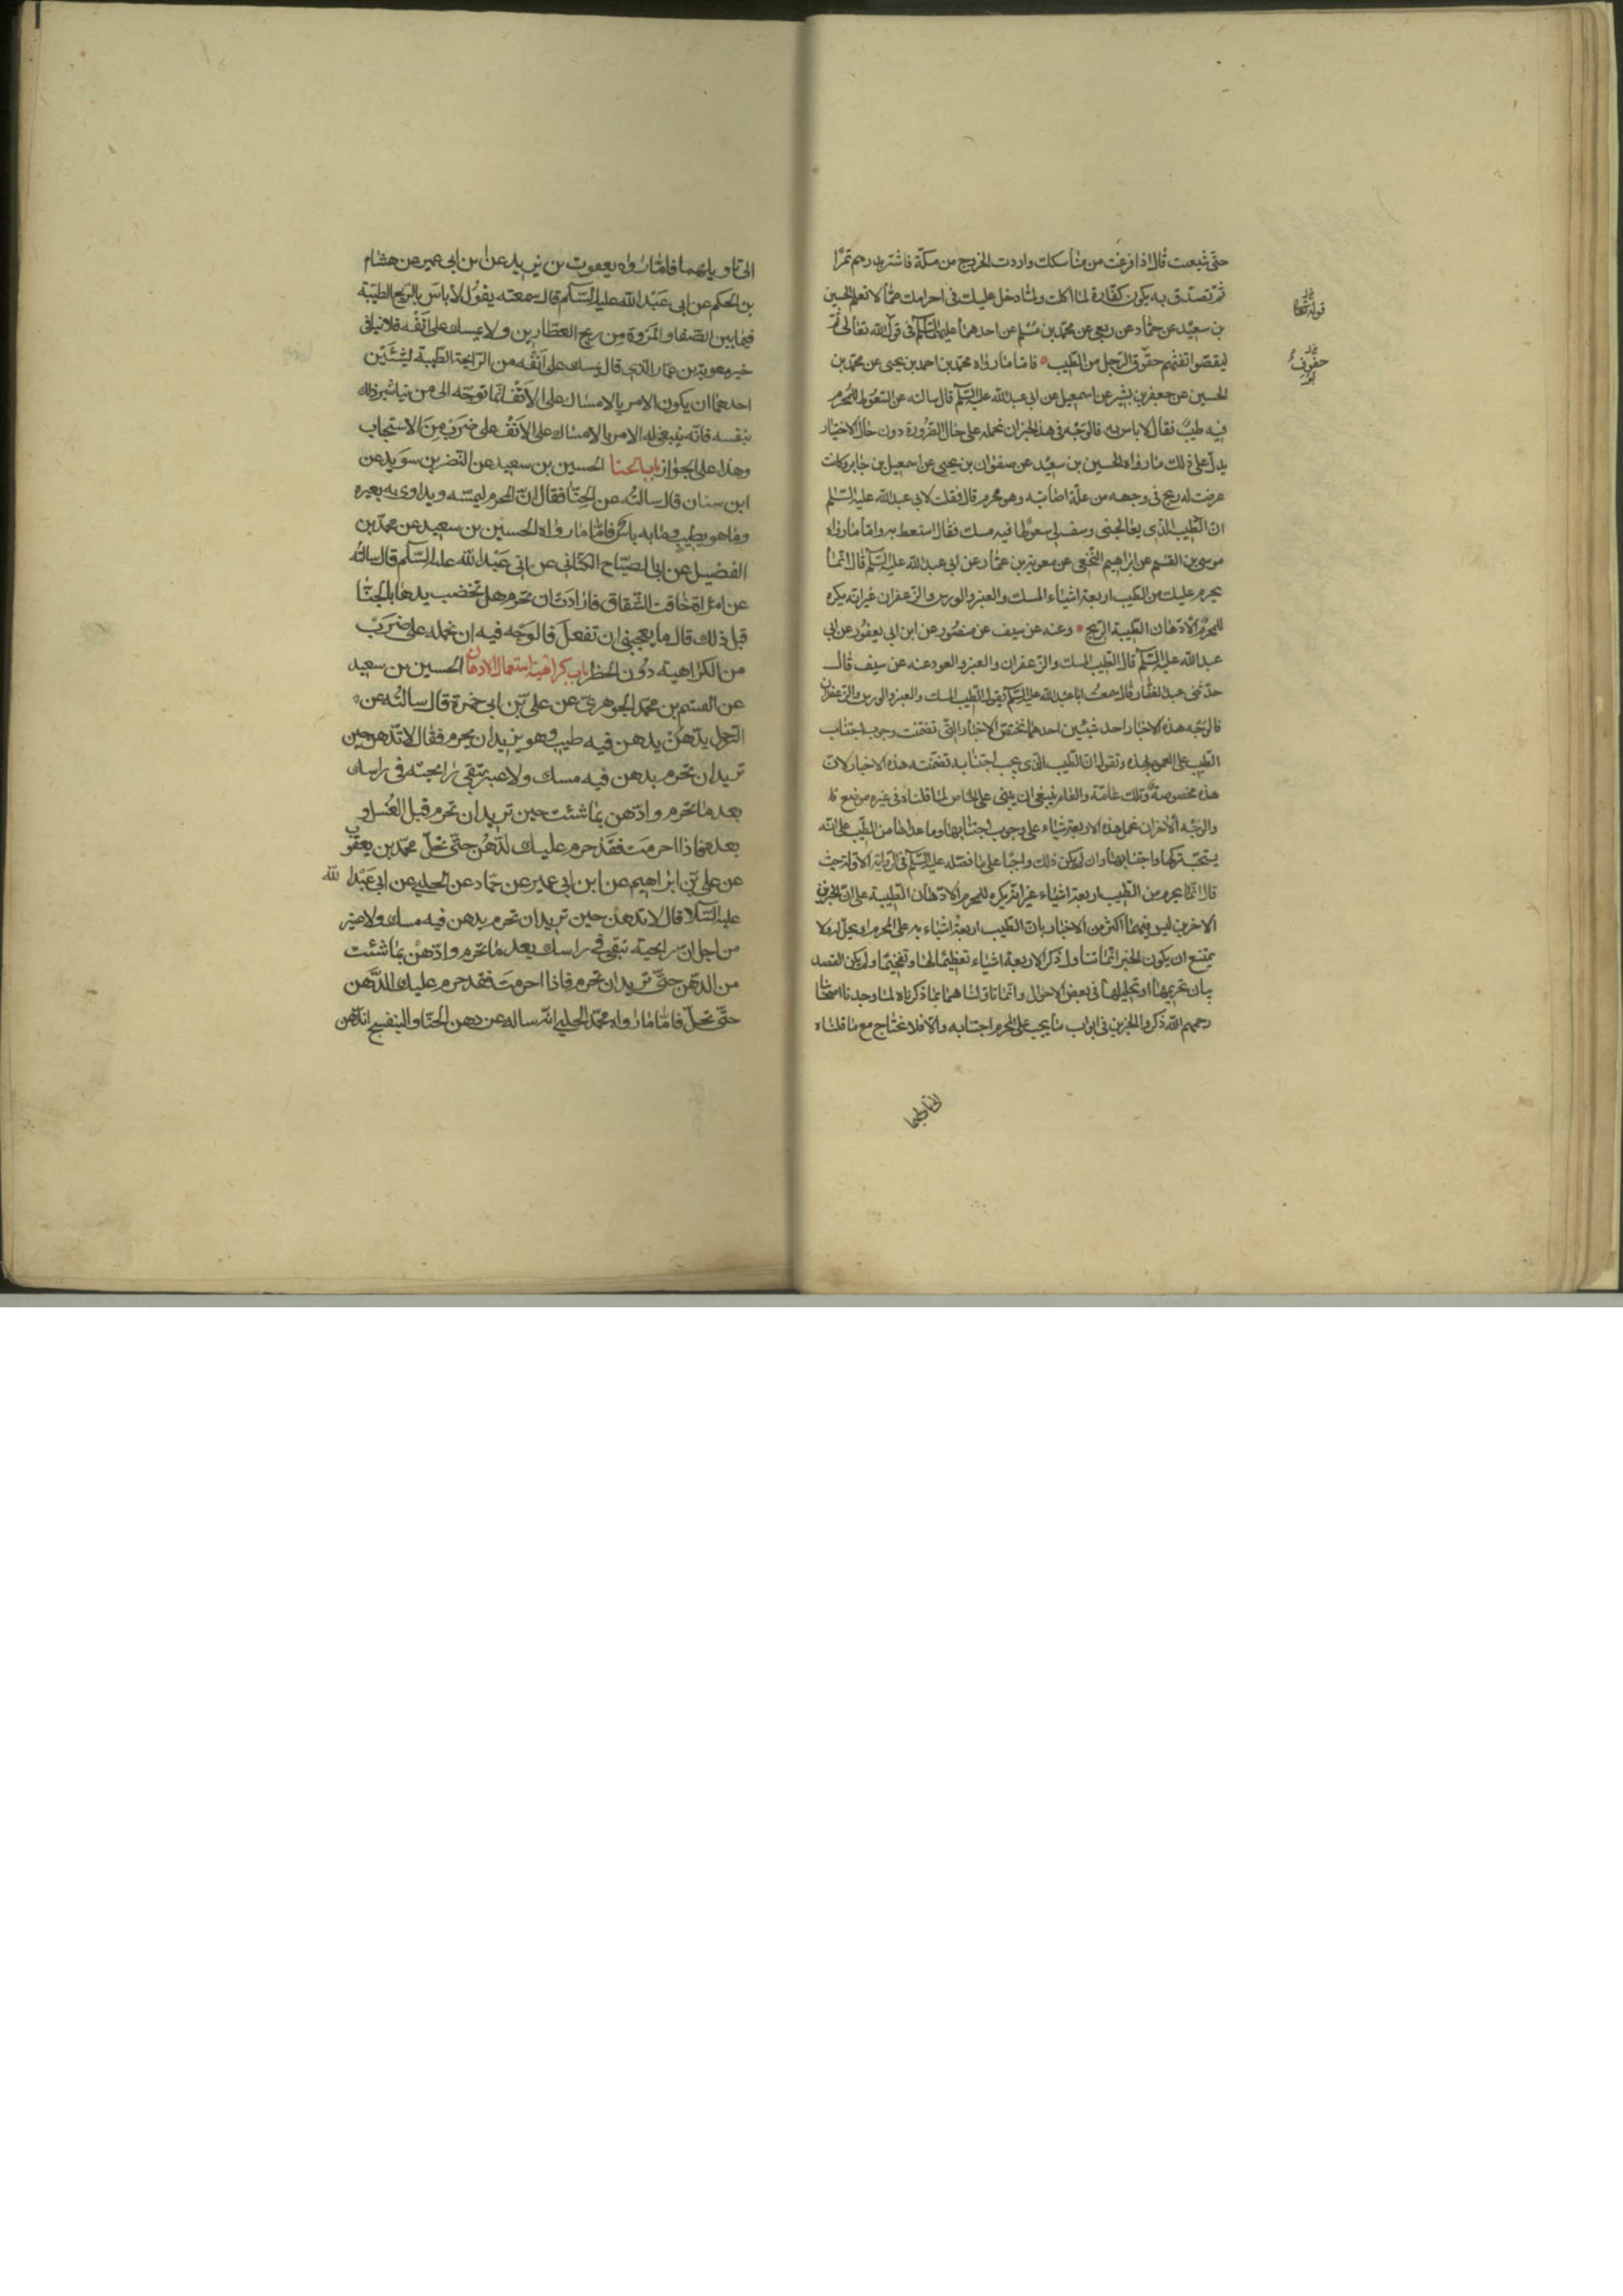 حتى شبعت قال اذا فرغت من مناسكك واردت الخروج من مكة فاشتر بدرهم تمرا
ثم تصدق به يكون كفارة لما اكلت ولما دخل عليك في احرامك مما لا تعلم الحسين
بن سعيد عن حماد عن ربعي عن محمد بن مسلم عن احدهما عليهما السلم في قول الله تعالى ثم
ليقضوا تفثهم حفوف الرجل من الطيب فاما ما رواه محمد بن احمد بن يحيى عن محمد بن
الحسين عن جعفر بن بشير عن اسمعيل عن ابي عبد الله عليه السلم قال سالته عن السعوط للمحرم
فيه طيب فقال لا باس به فالوجه في هذا الخبر ان نحمله على حال الضرورة دون حال الاختيار
يدل على ذلك ما رواه الحسين بن سعيد عن صفوان بن يحيى عن اسمعيل بن جابر وكانت
عرضت له ريح في وجهه من علة اصابته وهو محرم قال فقلت لابي عبد الله عليه السلم
ان الطبيب الذي يعالجني وصف لي سعوطا فيه مسك فقال استعط به واما ما رواه
موسى بن القسم عن ابراهيم النخعي عن معوية بن عمار عن ابي عبد الله عليه السلم قال انما
يحرم عليك من الطيب اربعة اشياء المسك والعنبر والورس والزعفران غير انه يكره
للمحرم الادهان الطيبة الريح وعنه عن سيف عن منصور عن ابن ابي يعفور عن ابي
عبد الله عليه السلم قال الطيب المسك والزعفران والعنبر والعود عنه عن سيف قال
حدثني عبد الغفار قال سمعت ابا عبد الله عليه السلم يقول الطيب المسك والعنبر والورس والزعفران
فالوجه هذه الاخبار احد شيئين احدهما نختص الاخبار التي تضمنت وجوب اجتناب
الطيب على العموم بهذه ونقول ان الطيب الذي يجب اجتنابه تضمنته هذه الاخبار لان
هذه مخصوصة وتلك عامة والعام ينبغي ان يبنى على الخاص لما قلناه في غيره موضع
والوجه الاخر ان نحمل هذه الاربعة اشياء على وجوب اجتنابها وما عداها من الطيب على انه
يستحب تركها واجتنابها وان لم يكن ذلك واجبا على ما فصله عليه السلم في الرواية الاولة حيث
قال انما يحرم من الطيب اربعة اشياء غير انه يكره للمحرم الادهان الطيبة على ان الخبرين
الاخرين ليس فيهما اكثر من الاخبار بان الطيب اربعة اشياء على المحرم او يحل له ولا
يمتنع ان يكون الخبر انما تناول ذكر الاربعة اشياء تعظيما لها وتفخيما ولم يكن القصد
بيان تحريمها او تحليلها في بعض الاحوال وانما تاولناهما بما ذكرناه لما وجدنا اصحابنا
رحمهم الله ذكروا الخبرين في ابواب ما يجب على المحرم اجتنابه والا فلا نحتاج مع ما قلناه
الى تاويلهما
الى تاويلهما فاما ما رواه يعقوب بن يزيد عن ابن ابي عمير عن هشام
بن الحكم عن ابي عبد الله عليه السلم قال سمعته يقول لا باس بالريح الطيبة
فيما بين الصفا والمروة من ريح العطارين ولا يمسك على انفه فلا ينافي
خبر معوية بن عمار الذي قال يمسك على انفه من الرايحة الطيبة لشيئين
احدهما ان يكون الامر بالامساك على الانف انما توجه الى من يباشر ذلك
بنفسه فانه ينبغي له الامر بالامساك على الانف على ضرب من الاستحباب
وهذا على الجواز باب الحنا الحسين بن سعيد عن النضر بن سويد عن
ابن سنان قال سالته عن الحنا فقال ان المحرم ليمسه ويداوي به بعيره
وما هو بطيب وما به باس فاما ما رواه الحسين بن سعيد عن محمد بن
الفضيل عن ابي الصباح الكناني عن ابي عبد الله عليه السلم قال سالته
عن امراة خافت الشقاق فارادت ان تحرم هل تخضب يدها بالحنا
قبل ذلك قال ما يعجبني ان تفعل فالوجه فيه ان نحمله على ضرب
من الكراهية دون الحظر باب كراهية استعمال الادهان الحسين بن سعيد
عن القسم بن محمد الجوهري عن علي بن ابي حمزة قال سالته عن
الرجل يدهن بدهن فيه طيب وهو يريد ان يحرم فقال لا تدهن حين
تريد ان تحرم بدهن فيه مسك ولا عنبر تبقى رايحته في راسك
بعد ما تحرم وادهن بما شئت حين تريد ان تحرم قبل الغسل و
بعده فاذا احرمت فقد حرم عليك الدهن حتى تحل محمد بن يعقوب
عن علي بن ابراهيم عن ابن ابي عمير عن حماد عن الحلبي عن ابي عبد الله
عليه السلام قال لا تدهن حين تريد ان تحرم بدهن فيه مسك ولا عنبر
من اجل ان رايحته تبقى في راسك بعد ما تحرم وادهن بما شئت
من الدهن حتى تريد ان تحرم فاذا احرمت فقد حرم عليك الدهن
حتى تحل فاما ما رواه محمد الحلبي انه ساله عن دهن الحنا والبنفسج اندهن